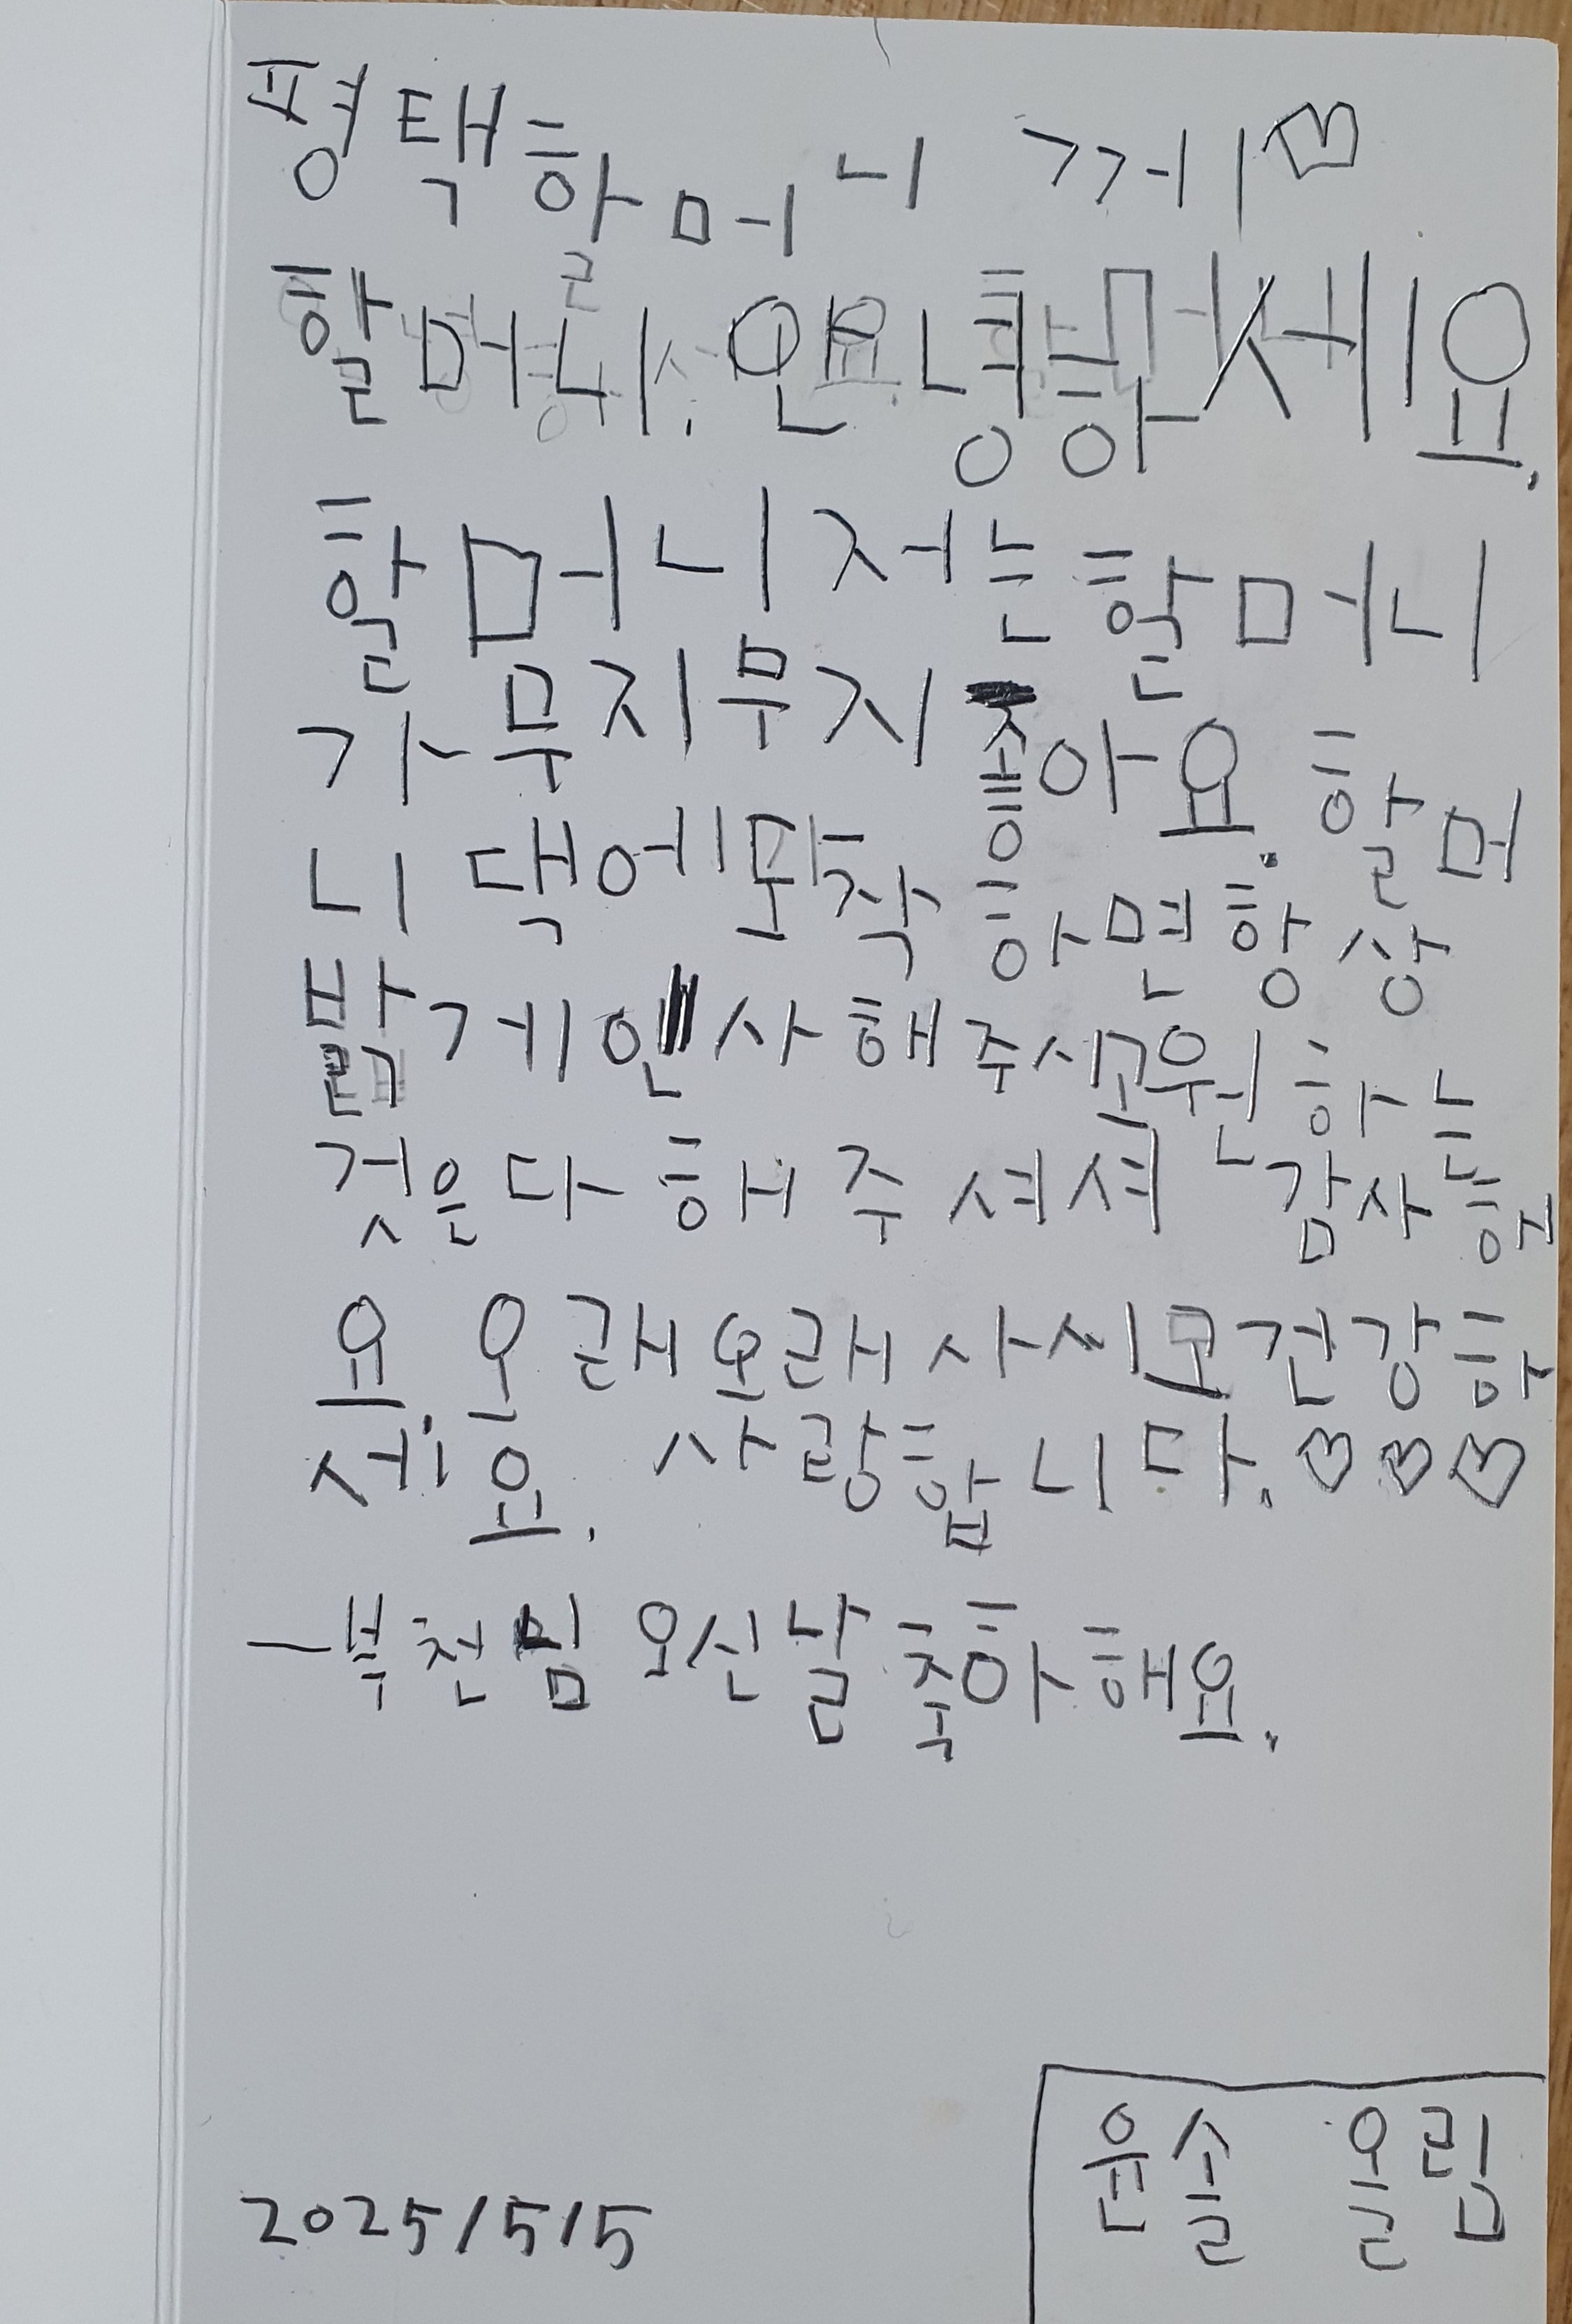 평택하머니 께♡
할머니. 안녕하세요.
할머니 저는 할머니
가 무지무지 좋아요. 할머
니 댁에 도착하면 항상
밝게 인사해 주시고 원하는
것은 다 해 주셔셔 감사해
요. 오래오래 사시고 건강하
세요. 사랑합니다. ♡♡♡
ㅡ부천님 오신날 축하해요.
2025/5/5
윤솔 올림